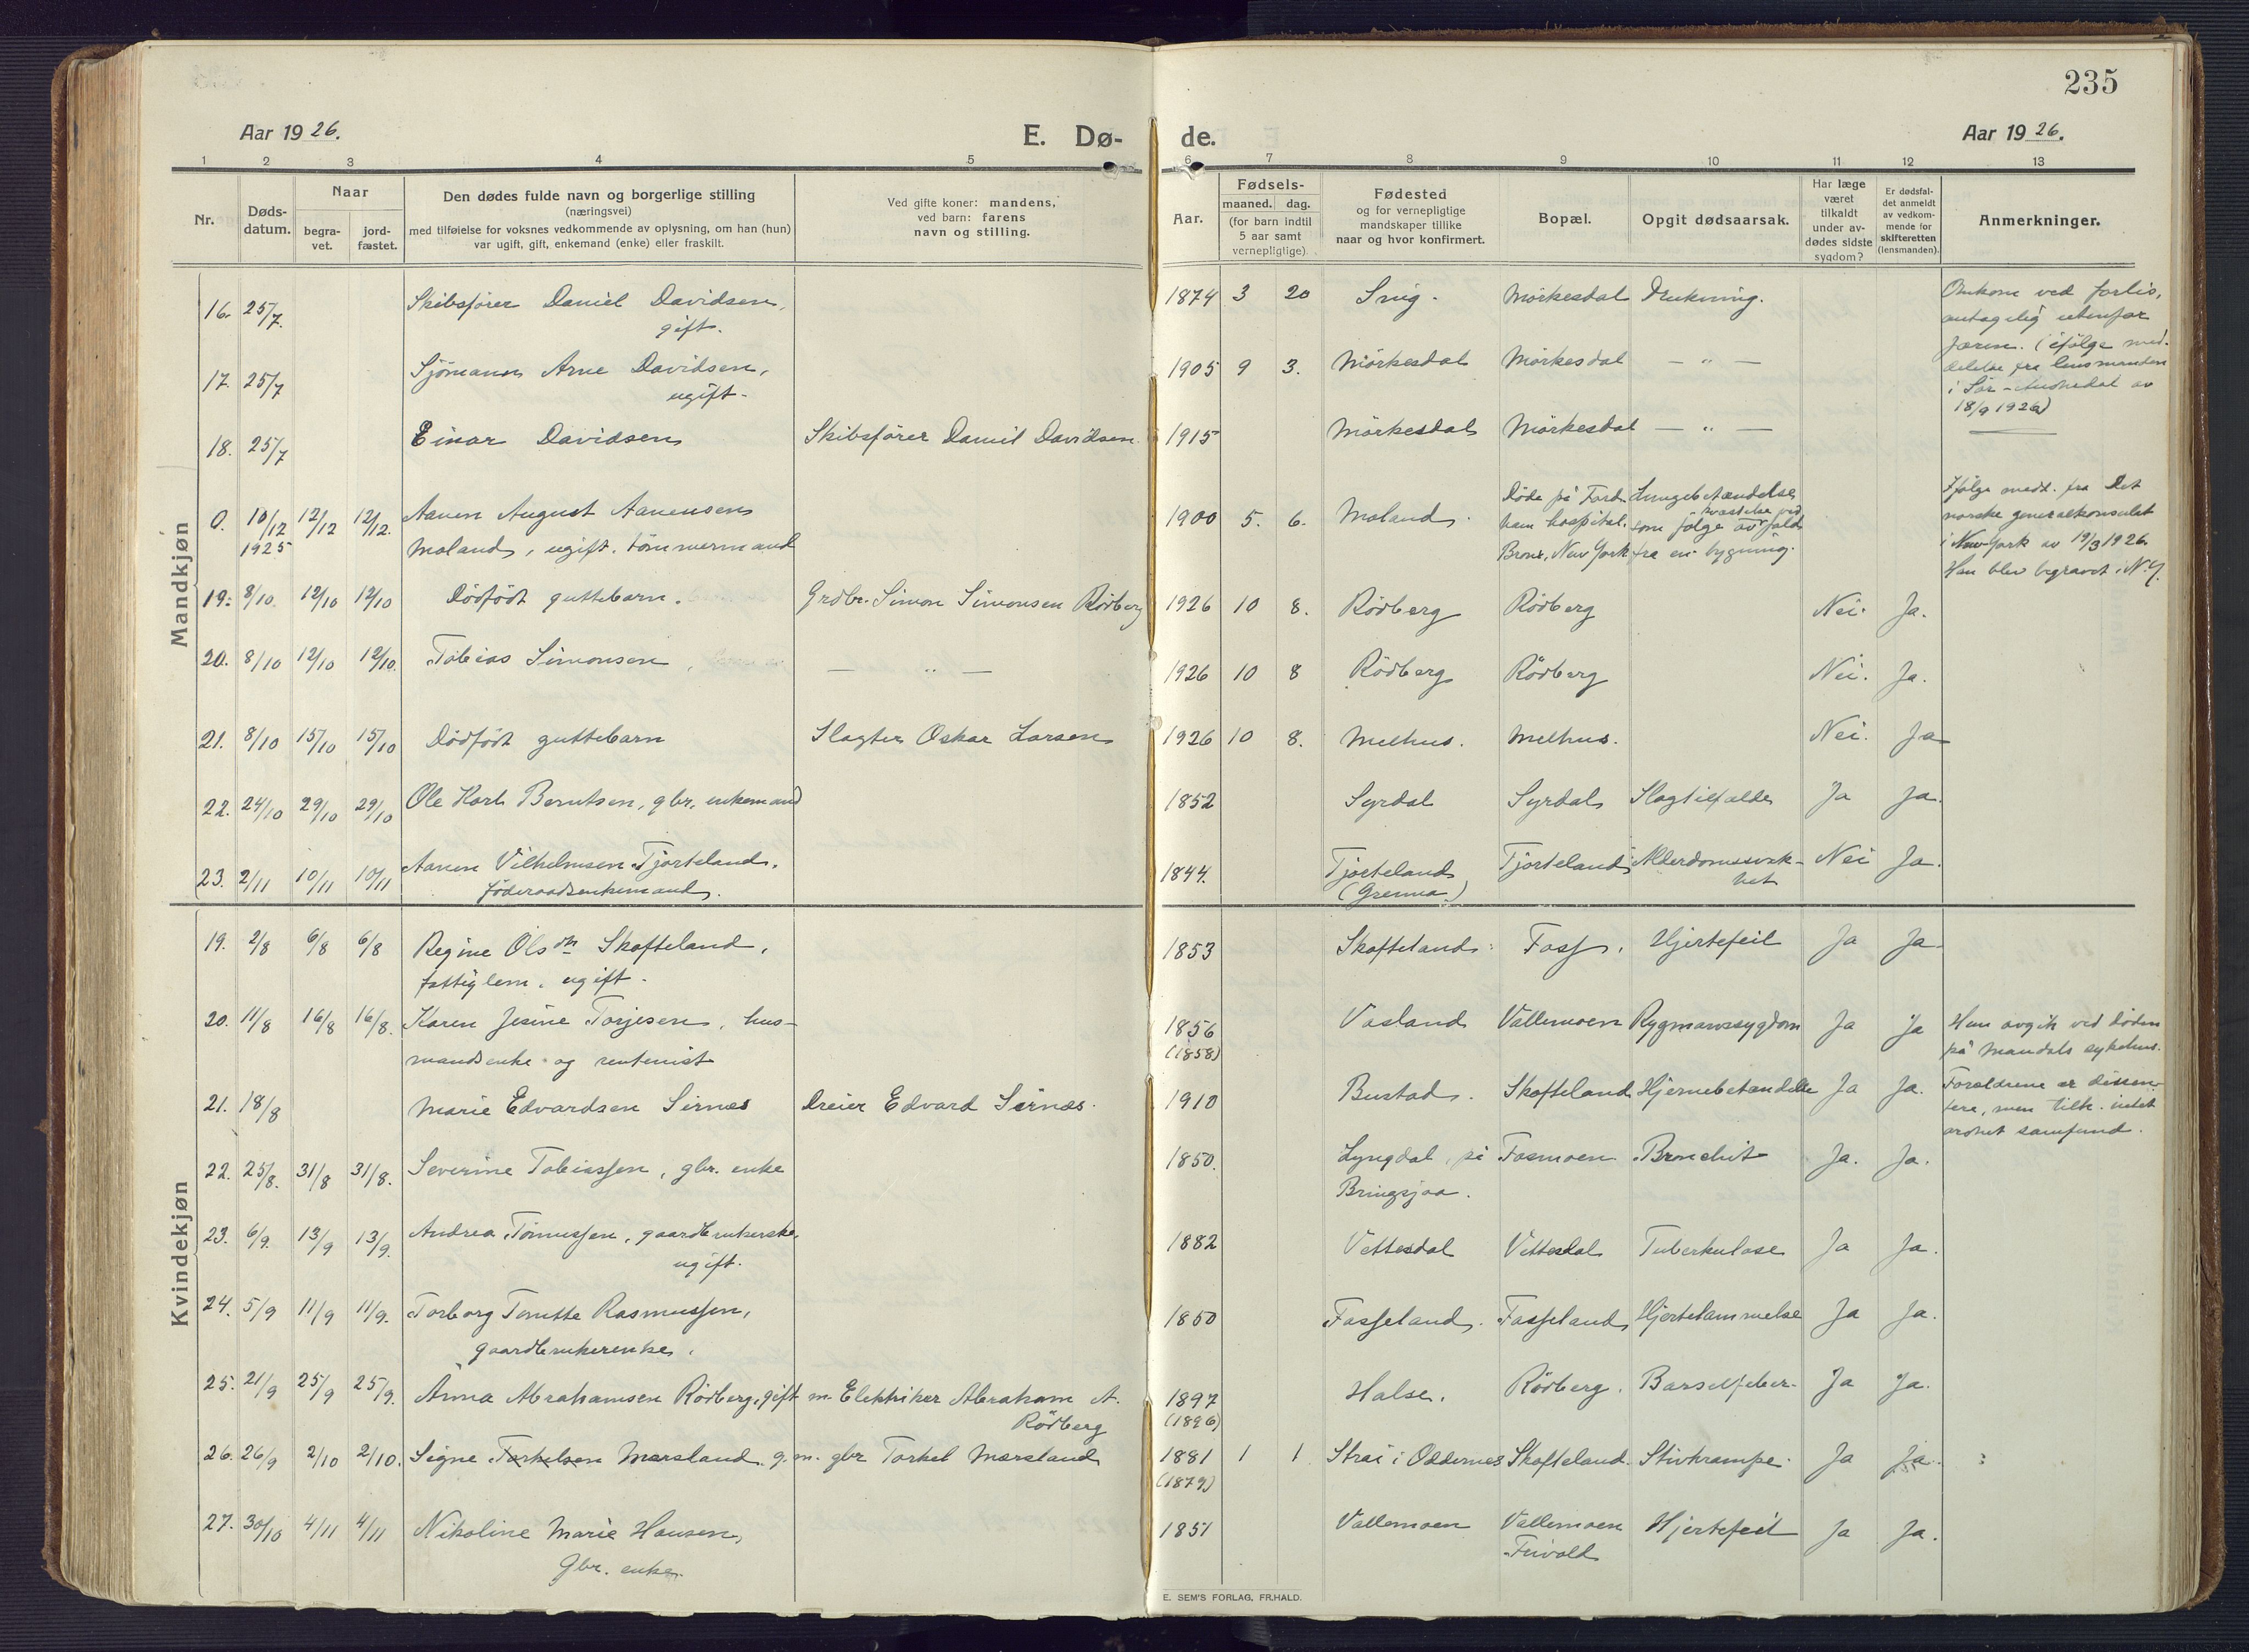 235
Aar 1926.
E. Dø-
de.
Aar 1926.
1 2 3 4 5 6 7 8 9 10 11 12 13
Nr.
Døds-
datum.
Naar
begra-
vet.
jord-
fæstet.
Den dødes fulde navn og borgerlige stilling
(næringsvei)
med tilføielse for voksnes vedkommende av oplysning, om han (hun)
var ugift, gift, enkemand (enke) eller fraskilt.
Ved gifte koner: mandens,
ved barn: farens
navn og stilling.
Aar.
Fødsels-
maaned. dag.
(for barn indtil
5 aar samt
vernepligtige)
Fødested
og for vernepligtige
mandskaper tillike
naar og hvor konfirmert.
Bopæl.
Opgit dødsaarsak.
Har læge
været
tilkaldt
under av-
dødes sidste
sygdom?
Er dødsfal-
det anmeldt
av vedkom-
mende for
skifteretten
(lensmanden).
Anmerkninger.
Mandkjøn
16. 25/7. Skibsfører Daniel Davidsen, 1874 3 20 Snig. Mörkesdal Drukning. Omkom ved forlis,
gift. antagelig utenfor
Jæren. (ifølge med-
17. 25/7 Sjömann Arne Davidsen, 1905 9 3. Mörkesdal Mörkesdal — " — delelse fra lensmanden
ugift. i Sör-Audnedal av
18/9 1926)
18. 25/7 Einar Davidsen Skibsfører Daniel Davidsen. 1915 Mörkesdal Mörkesdal — " —
0. 10/12 1925 12/12 12/12. Aanen August Aanensen 1900 5. 6. Moland. Döde på Ford- Lungebetændelse Ifølge medd. fra Det
Moland, ugift. tömmermand ham hospital, som følge av kvæstelse ved fald norske generalkonsulat
Bronx, New York fra en bygning. i New York av 19/3 1926.
Han blev begravet i N.Y.
19. 8/10. 12/10 12/10 Dödfödt guttebarn. Grdbr. Simon Simonsen Rödberg 1926 10 8. Rödberg Rödberg Nei. Ja.
20. 8/10 12/10 12/10. Tobias Simonsen, — " — 1926 10 8 Rödberg Rödberg Nei. Ja.
21. 8/10 15/10 15/10 Dödfödt guttebarn Slagter Oskar Larsen 1926 10 8. Melhus. Melhus. Nei. Ja
22. 24/10 29/10 29/10 Ole Karl Berntsen, gbr. enkemand 1852 Syrdal Syrdal Slagtilfælde Ja Ja.
23. 2/11 10/11 10/11 Aanen Vilhelmsen Tjorteland, 1844. Tjorteland Tjorteland Alderdomssvak- Nei Ja.
föderaadsenkemand. (Grenna) het
Kvindekjøn
19. 2/8 6/8 6/8 Regine Olsdtr Skofteland, 1853 Skofteland Foss. Hjertefeil Ja Ja
fattiglem, ugift.
20. 11/8 16/8 16/8. Karen Jesine Torjesen, hus- 1856 Vasland Vallemoen Rygmarvssygdom Ja Ja Hun avgik ved döden
mandsenke og rentenist (1858) på Mandals sykehus.
21. 18/8 Marie Edvardsen Sirnes Dreier Edvard Sirnes. 1910 Bustad. Skofteland Hjernebetændelse Ja Ja. Forældrene er dissen-
tere, men tilh. intet
ordnet samfund.
22. 25/8. 31/8 31/8. Severine Tobiassen, gbr. enke 1850. Lyngdal, på Fosmoen Bronchit Ja. Ja.
Bringsjaa.
23. 6/9. 13/9 13/9. Andrea Tönnessen, gaardbrukerske, 1882 Vettesdal Vettesdal Tuberkulose Ja Ja.
ugift.
24. 5/9 11/9 11/9. Torborg Tomitte Rasmussen, 1850 Fosseland. Fosseland Hjertelammelse Ja Ja.
gaardbrukerenke.
25. 21/9 25/9 25/9. Anna Abrahamsen Rödberg, gift m. Elektriker Abraham A. 1897 Halse. Rödberg. Barselfeber Ja Ja.
Rödberg (1896)
26. 26/9 2/10 2/10. Signe Torkelsen Marsland. g. m. gbr Torkel Marsland 1881 1 1 Strai i Oddernes Skofteland. Stivkrampe. Ja Ja.
(1879)
27. 30/10 4/11 4/11 Nikoline Marie Hansen, 1851 Vallemoen Vallemoen Hjertefeil Ja Ja.
Gbr. enke. Frivold
E. SEM'S FORLAG, FR.HALD.